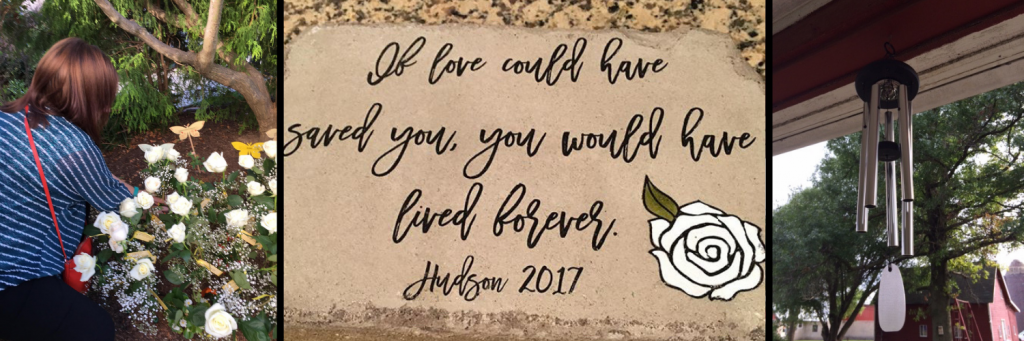 If love could have
saved you, you would have
lived forever.
Hudson 2017